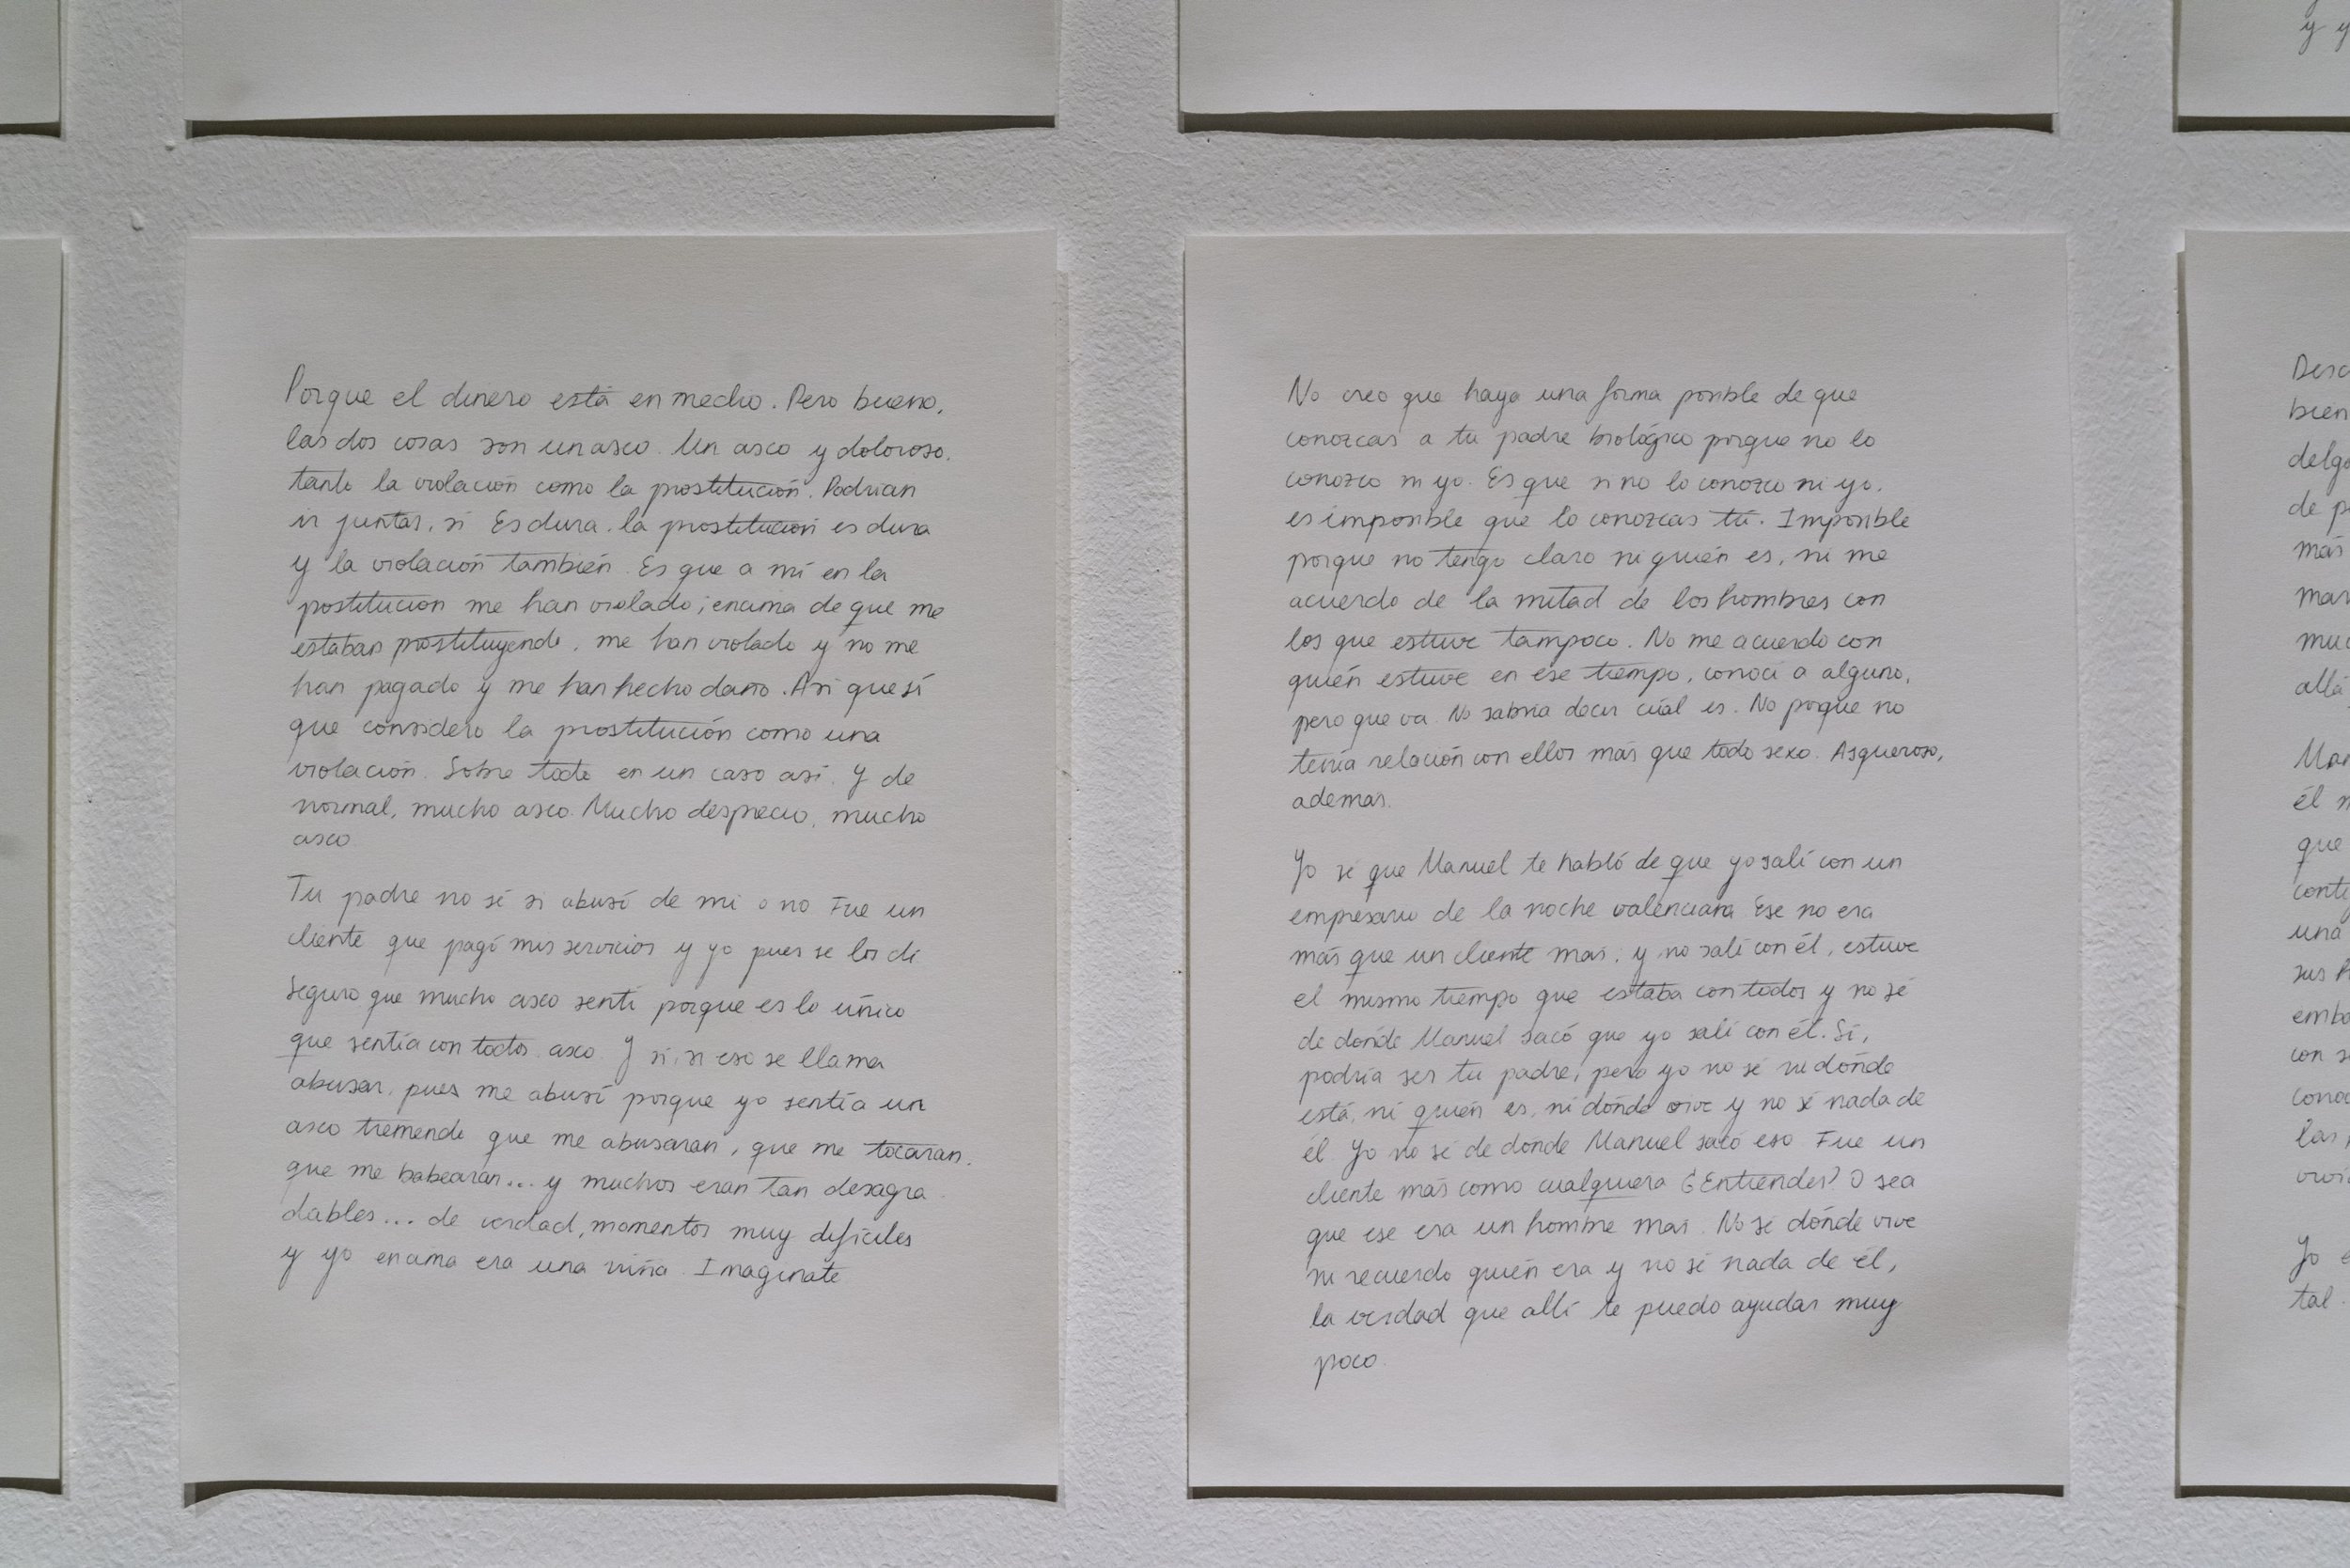 y y
Porque el dinero está en medio. Pero bueno,
las dos cosas son un asco. Un asco y doloroso,
tanto la violación como la prostitución. Podrían
ir juntas, sí. Es dura, la prostitución es dura
y la violación también. Es que a mí en la
postitución me han violado; encima de que me
estaban prostituyendo, me han violado y no me
han pagado y me han hecho daño. Así que sí
que considero la prostitución como una
violación. Sobre todo en un caso así. Y de
normal, mucho asco. Mucho desprecio, mucho
asco.
Tu padre no sé si abusó de mi o no. Fue un
cliente que pagó mis servicios y yo pues se los di
Seguro que mucho asco sentí porque es lo único
que sentía con todos, asco. Y sí, si eso se llama
abusar, pues me abusó porque yo sentía un
asco tremendo que me abusaran, que me tocaran,
que me babearan... y muchos eran tan desagra
dables... de verdad, momentos muy difíciles
y yo encima era una niña. Imagínate
No creo que haya una forma posible de que
conozcas a tu padre biológico porque no lo
conozco ni yo. Es que si no lo conozco ni yo,
es imposible que lo conozcas tú. Imposible
porque no tengo claro ni quién es, ni me
acuerdo de la mitad de los hombres con
los que estuve tampoco. No me acuerdo con
quién estuve en ese tiempo, conocí a alguno,
pero que va. No sabría decir cuál es. No porque no
tenía relación con ellos más que todo sexo. Asqueroso,
además.
Yo sé que Manuel te habló de que yo salí con un
empresario de la noche valenciana. Ese no era
más que un cliente más; y no salí con él, estuve
el mismo tiempo que estaba con todos y no sé
de dónde Manuel sacó que yo salí con él. Sí,
podría ser tu padre, pero yo no sé ni dónde
está, ni quién es, ni dónde vive y no sé nada de
él. Yo no sé de dónde Manuel sacó eso. Fue un
cliente más como cualquiera ¿Entiendes? O sea
que ese era un hombre más. No sé dónde vive
ni recuerdo quién era y no sé nada de él,
la verdad que allí te puedo ayudar muy
poco.
bien
de p
más
mar
muc
allá
él m
que
una
sus
con s
tal.